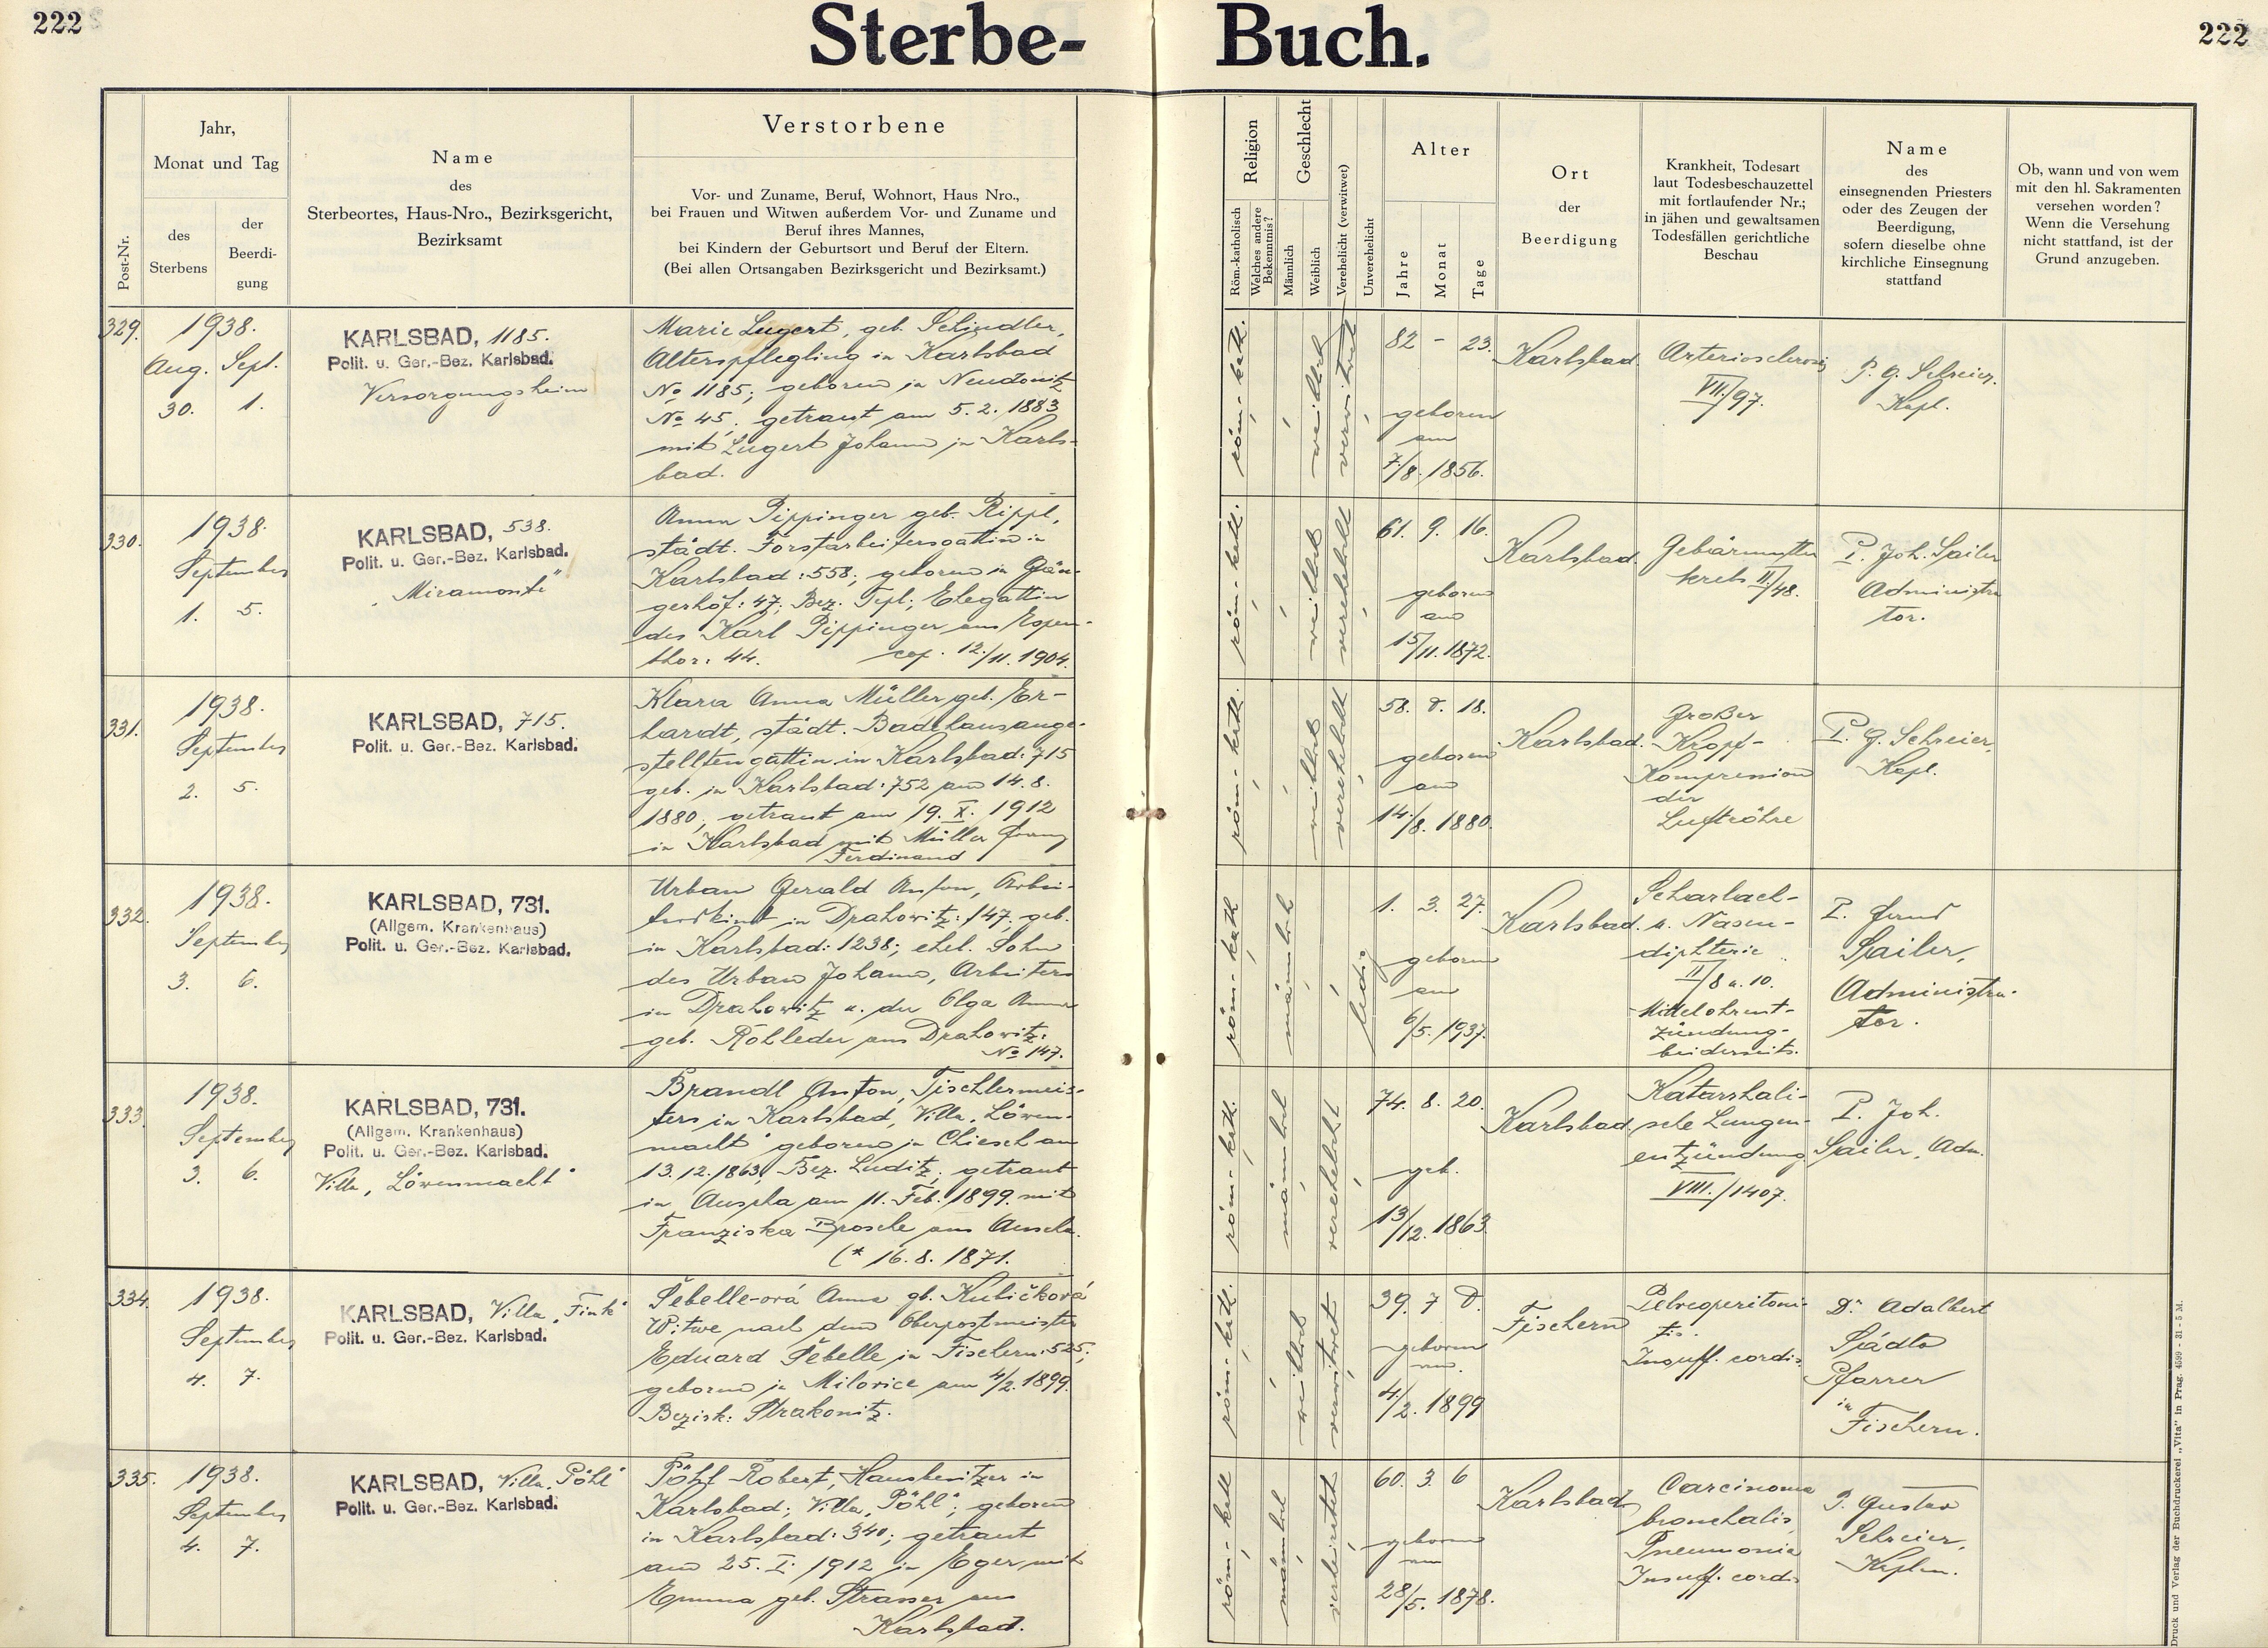 222
Sterbe-
Buch.
222
Post-Nr.
Jahr,
Monat und Tag
des
Sterbens
der
Beerdi-
gung
Name
des
Sterbeortes, Haus-Nro., Bezirksgericht,
Bezirksamt
Verstorbene
Vor- und Zuname, Beruf, Wohnort, Haus Nro.,
bei Frauen und Witwen außerdem Vor- und Zuname und
Beruf ihres Mannes,
bei Kindern der Geburtsort und Beruf der Eltern.
(Bei allen Ortsangaben Bezirksgericht und Bezirksamt.)
Religion
Röm.-katholisch
Welches andere
Bekenntnis?
Geschlecht
Männlich
Weiblich
Verehelicht (verwitwet)
Unverehelicht
Alter
Jahre
Monat
Tage
Ort
der
Beerdigung
Krankheit, Todesart
laut Todesbeschauzettel
mit fortlaufender Nr.;
in jähen und gewaltsamen
Todesfällen gerichtliche
Beschau
Name
des
einsegnenden Priesters
oder des Zeugen der
Beerdigung,
sofern dieselbe ohne
kirchliche Einsegnung
stattfand
Ob, wann und von wem
mit den hl. Sakramenten
versehen worden?
Wenn die Versehung
nicht stattfand, ist der
Grund anzugeben.
329.
1938.
Aug. Sept.
30. 1.
KARLSBAD, 1185.
Polit. u. Ger.-Bez. Karlsbad.
Versorgungsheim
Marie Lugert, geb. Schindler,
Alterspflegling in Karlsbad
No 1185; geboren in Neudonitz
No 45, getraut am 5. 2. 1883
mit Lugert Johann in Karls-
bad.
röm.- kath.
weiblich
verwitwet
82 - 23.
geboren
am
7./8. 1856.
Karlsbad.
Arteriosclerosis
VII./97.
P. G. Schreier.
Kapl.
330.
1938.
September
1. 5.
KARLSBAD, 538.
Polit. u. Ger.-Bez. Karlsbad.
"Miramonte"
Anna Pippinger geb. Rippl,
städt. Forstarbeitersgattin in
Karlsbad: 558; geboren in Gän-
gerhöf: 47; Bez. Tepl; Ehegattin
des Karl Pippinger aus Espen-
thor: 44. cop. 12./11. 1904.
röm.- kath.
weiblich
verehelicht
61. 9. 16.
geboren
am
15/11. 1872.
Karlsbad.
Gebärmutter
krebs II./48.
P. Joh. Sailer
Administra
tor.
331.
1938.
September
2. 5.
KARLSBAD, 715.
Polit. u. Ger.-Bez. Karlsbad.
Klara Anna Müller geb. Er-
hardt, städt. Badehausange-
stelltengattin in Karlsbad: 715
geb. in Karlsbad: 752 am 14. 8.
1880; getraut am 19. X. 1912
in Karlsbad mit Müller Franz
Ferdinand
röm.- kath.
weiblich
verehelicht
58. 0. 18.
geboren
am
14./8. 1880.
Karlsbad.
Großer
Kropf-
Kompression
der
Luftröhre
P. G. Schreier,
Kapl.
332.
1938.
September
3. 6.
KARLSBAD, 731.
(Allgem. Krankenhaus)
Polit. u. Ger.-Bez. Karlsbad.
Urban Gerald Anton, Arbei-
terskind in Drahowitz: 147; geb.
in Karlsbad: 1238; ehel. Sohn
des Urban Johann, Arbeiters
in Drahowitz u. der Olga Anna
geb. Rohleder aus Drahowitz:
No 147.
röm.- kath
männlich
ledig
1. 3. 27.
geboren
am
6/5. 1937.
Karlsbad.
Scharlach-
u. Nasen-
diphterie
II/8 u. 10.
Mittelohrent-
zündung-
beiderseits.
P.
Sailer,
Administra-
tor.
333.
1938.
September
3. 6.
KARLSBAD, 731.
(Allgem. Krankenhaus)
Polit. u. Ger.-Bez. Karlsbad.
Villa „Löwenmacht"
Brandl Anton, Tischlermeis-
ters in Karlsbad, Villa „Löwen-
macht" geboren in Chiesch am
13. 12. 1863, Bez. Luditz; getraut
in Auscha am 11. Feb. 1899 mit
Franziska Brosche aus Auscha.
(* 16. 8. 1871.
röm.- kath.
männlich
verehelicht
74. 8. 20.
geb.
13/12. 1863.
Karlsbad.
Katarrhali-
sche Lungen-
entzündung
VIII./1407.
P. Joh.
Sailer, Adm.
334.
1938.
September
4. 7.
KARLSBAD, Villa „Fink"
Polit. u. Ger.-Bez. Karlsbad.
Šebelle-ová Anna gb. Kubičková
Witwe nach dem Oberpostmeister
Eduard Šebelle in Fischern: 525;
geboren in Milovice am 4/2. 1899.
Bezirk: Strakonitz.
röm.- kath.
weiblich
verwitwet
39. 7 0.
geboren
am.
4/2. 1899
Fischern
Pelveoperitoni-
tis.
Insuff. cordis
Dr. Adalbert
Sádlo
Pfarrer
in
Fischern.
335.
1938.
September
4. 7.
KARLSBAD, Villa „Pöhl"
Polit. u. Ger.-Bez. Karlsbad.
Pöhl Robert, Hausbesitzer in
Karlsbad; Villa „Pöhl"; geboren
in Karlsbad: 340; getraut
am 25. I. 1912 in Eger mit
Emma geb. Strasser aus
Karlsbad.
röm.- kath
männlich
verheiratet
60. 3. 6
geboren
am
28/5. 1878.
Karlsbad
Carcinoma
bronchalis,
Pneumonia
Insuff. cordis
P. Gustav
Schreier,
Kaplan.
Druck und Verlag der Buchdruckerei „Vita" in Prag. 4599 - 31 - 5 M.